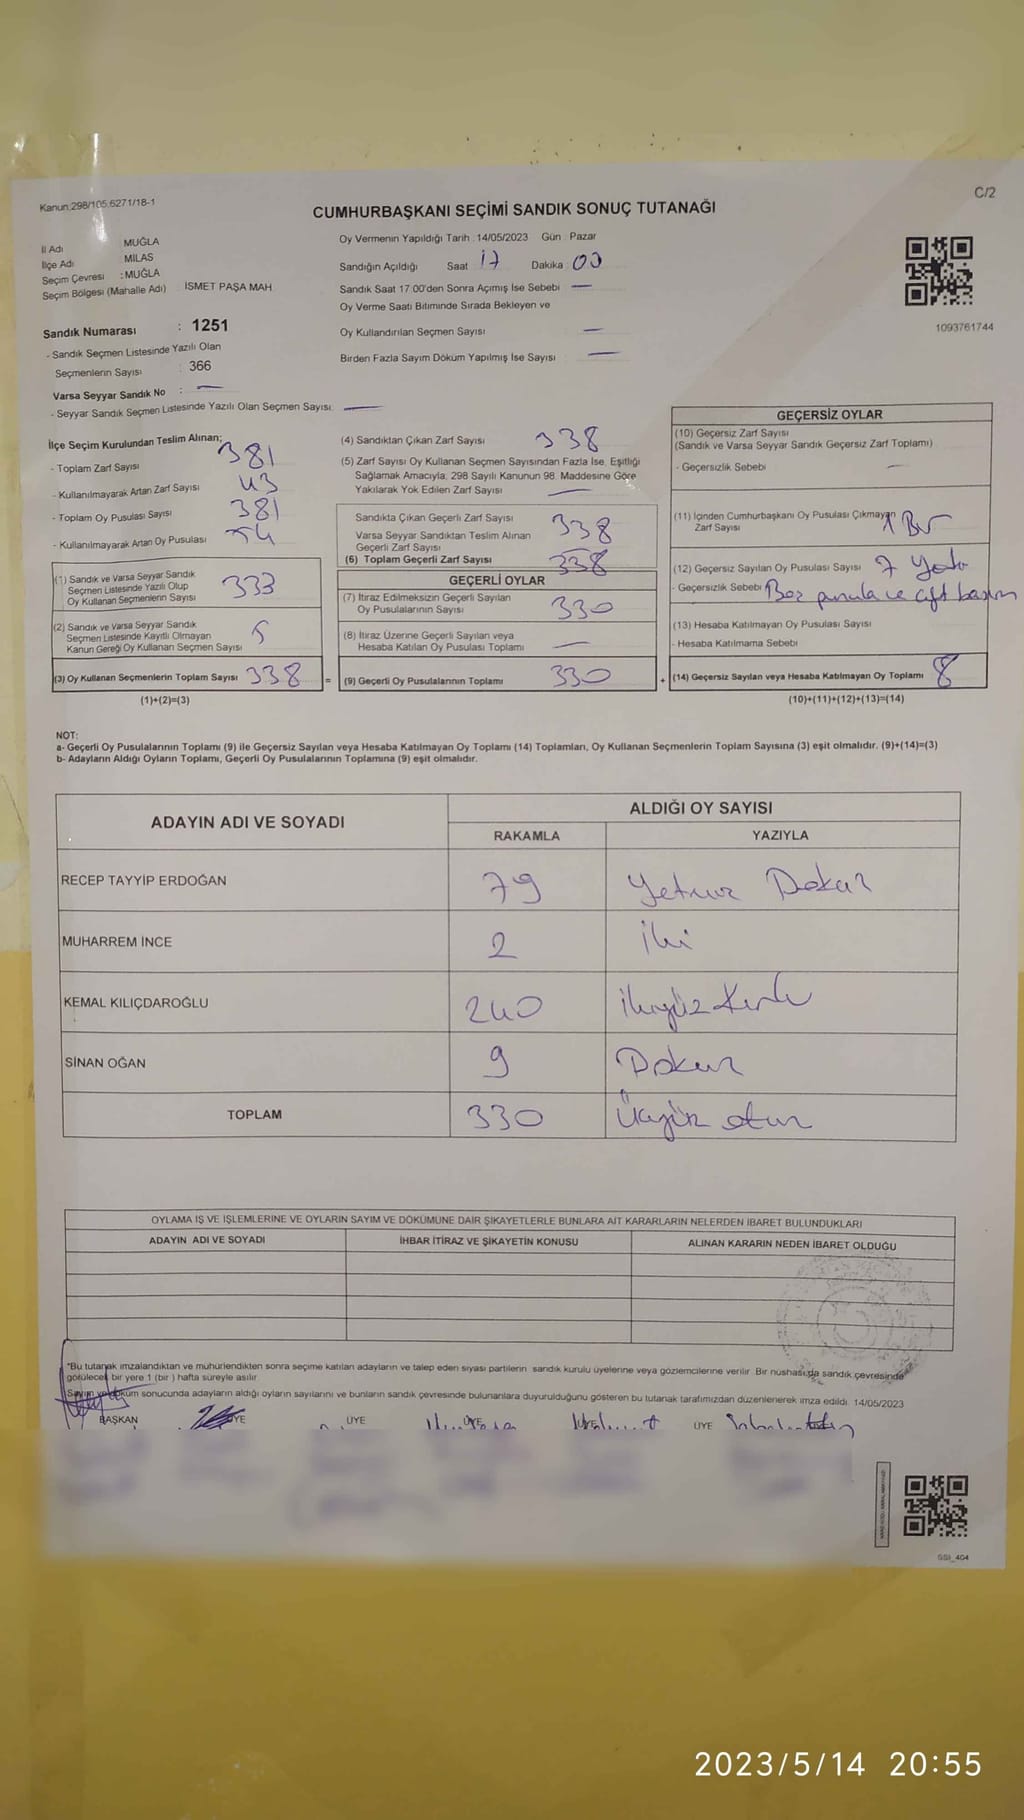 Kanun:298/105.6271/18-1
C/2
CUMHURBAŞKANI SEÇİMİ SANDIK SONUÇ TUTANAĞI
İl Adı MUĞLA
İlçe Adı MİLAS
Seçim Çevresi : MUĞLA
Seçim Bölgesi (Mahalle Adı) İSMET PAŞA MAH.
Sandık Numarası : 1251
- Sandık Seçmen Listesinde Yazılı Olan
Seçmenlerin Sayısı : 366
Varsa Seyyar Sandık No : —
- Seyyar Sandık Seçmen Listesinde Yazılı Olan Seçmen Sayısı: —
Oy Vermenin Yapıldığı Tarih : 14/05/2023 Gün : Pazar
Sandığın Açıldığı Saat 17 Dakika : 00
Sandık Saat 17.00'den Sonra Açımış İse Sebebi —
Oy Verme Saati Bitiminde Sırada Bekleyen ve
Oy Kullandırılan Seçmen Sayısı —
Birden Fazla Sayım Döküm Yapılmış İse Sayısı —
1093761744
İlçe Seçim Kurulundan Teslim Alınan;
- Toplam Zarf Sayısı 381
- Kullanılmayarak Artan Zarf Sayısı 43
- Toplam Oy Pusulası Sayısı 381
- Kullanılmayarak Artan Oy Pusulası
(1) Sandık ve Varsa Seyyar Sandık
Seçmen Listesinde Yazılı Olup
Oy Kullanan Seçmenlerin Sayısı 333
(2) Sandık ve Varsa Seyyar Sandık
Seçmen Listesinde Kayıtlı Olmayan
Kanun Gereği Oy Kullanan Seçmen Sayısı 5
(3) Oy Kullanan Seçmenlerin Toplam Sayısı 338
(1)+(2)=(3)
(4) Sandıktan Çıkan Zarf Sayısı 338
(5) Zarf Sayısı Oy Kullanan Seçmen Sayısından Fazla İse, Eşitliği
Sağlamak Amacıyla, 298 Sayılı Kanunun 98. Maddesine Göre
Yakılarak Yok Edilen Zarf Sayısı —
Sandıkta Çıkan Geçerli Zarf Sayısı 338
Varsa Seyyar Sandıktan Teslim Alınan
Geçerli Zarf Sayısı
(6) Toplam Geçerli Zarf Sayısı 338
GEÇERLİ OYLAR
(7) İtiraz Edilmeksizin Geçerli Sayılan
Oy Pusulalarının Sayısı 330
(8) İtiraz Üzerine Geçerli Sayılan veya
Hesaba Katılan Oy Pusulası Toplamı —
= (9) Geçerli Oy Pusulalarının Toplamı 330
GEÇERSİZ OYLAR
(10) Geçersiz Zarf Sayısı
(Sandık ve Varsa Seyyar Sandık Geçersiz Zarf Toplamı)
- Geçersizlik Sebebi —
(11) İçinden Cumhurbaşkanı Oy Pusulası Çıkmayan 1 Bir
Zarf Sayısı
(12) Geçersiz Sayılan Oy Pusulası Sayısı 7 Yedi
- Geçersizlik Sebebi Boş pusula ve çift basım
(13) Hesaba Katılmayan Oy Pusulası Sayısı
- Hesaba Katılmama Sebebi
+ (14) Geçersiz Sayılan veya Hesaba Katılmayan Oy Toplamı 8
(10)+(11)+(12)+(13)=(14)
NOT:
a- Geçerli Oy Pusulalarının Toplamı (9) ile Geçersiz Sayılan veya Hesaba Katılmayan Oy Toplamı (14) Toplamları, Oy Kullanan Seçmenlerin Toplam Sayısına (3) eşit olmalıdır. (9)+(14)=(3)
b- Adayların Aldığı Oyların Toplamı, Geçerli Oy Pusulalarının Toplamına (9) eşit olmalıdır.
ADAYIN ADI VE SOYADI ALDIĞI OY SAYISI
RAKAMLA YAZIYLA
RECEP TAYYİP ERDOĞAN 79 Yetmiş Dokuz
MUHARREM İNCE 2 İki
KEMAL KILIÇDAROĞLU 240 İkiyüz Kırk
SİNAN OĞAN 9 Dokuz
TOPLAM 330 Üçyüz otuz
OYLAMA İŞ VE İŞLEMLERİNE VE OYLARIN SAYIM VE DÖKÜMÜNE DAİR ŞİKAYETLERLE BUNLARA AİT KARARLARIN NELERDEN İBARET BULUNDUKLARI
ADAYIN ADI VE SOYADI İHBAR İTİRAZ VE ŞİKAYETİN KONUSU ALINAN KARARIN NEDEN İBARET OLDUĞU
*Bu tutanak imzalandıktan ve mühürlendikten sonra seçime katılan adayların ve talep eden siyasi partilerin sandık kurulu üyelerine veya gözlemcilerine verilir. Bir nüshası da sandık çevresinde
görülecek bir yere 1 (bir ) hafta süreyle asılır.
Sayım ve döküm sonucunda adayların aldığı oyların sayılarını ve bunların sandık çevresinde bulunanlara duyurulduğunu gösteren bu tutanak tarafımızdan düzenlenerek imza edildi. 14/05/2023
BAŞKAN ÜYE ÜYE ÜYE ÜYE ÜYE
SSI_404
2023/5/14 20:55